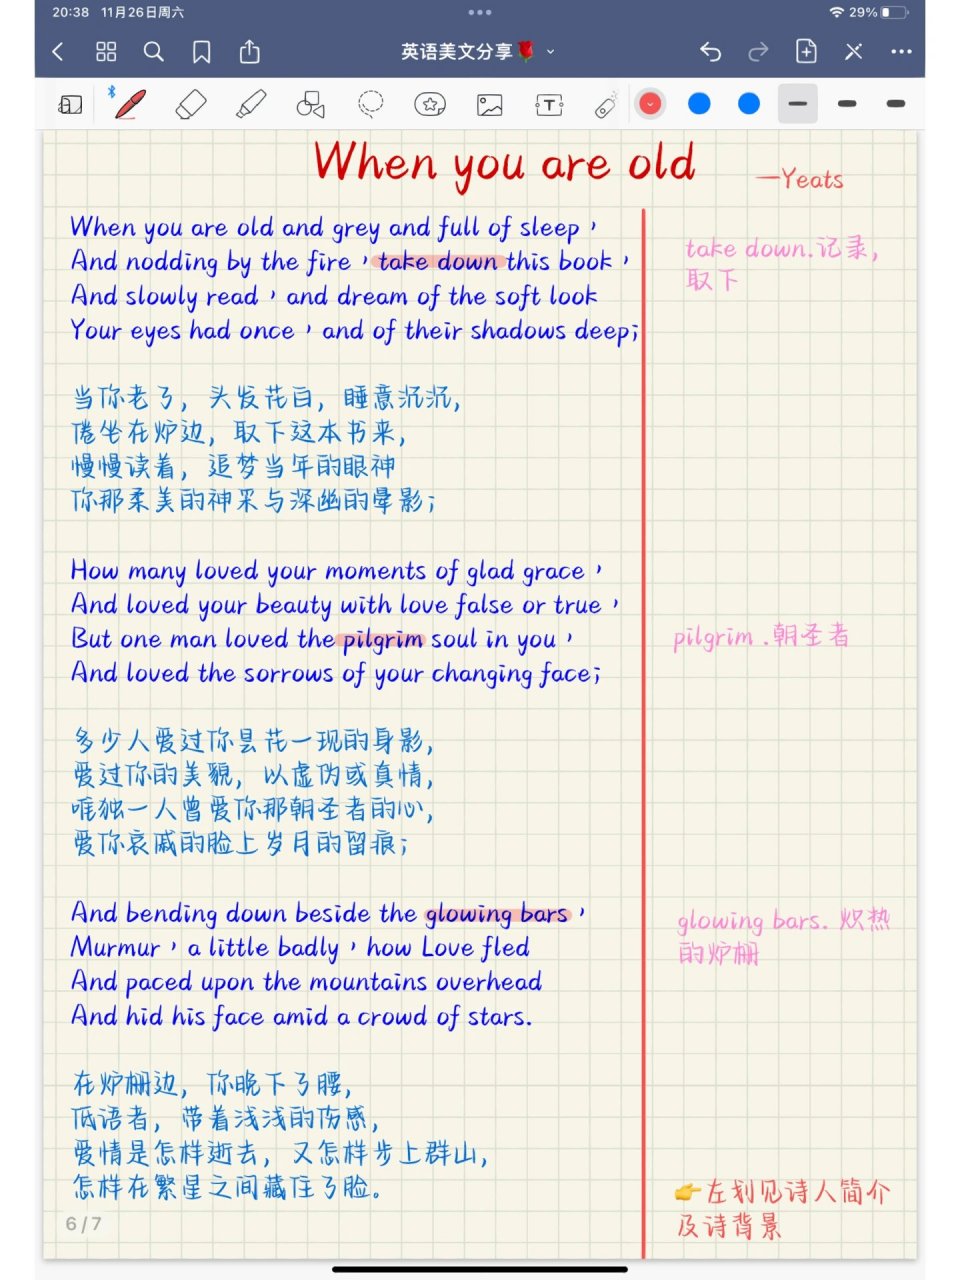 20:38 11月26日周六
29%
英语美文分享🌹
When you are old
—Yeats
When you are old and grey and full of sleep，
And nodding by the fire，take down this book，
And slowly read，and dream of the soft look
Your eyes had once，and of their shadows deep;
take down.记录,
取下
当你老了，头发花白，睡意沉沉，
倦坐在炉边，取下这本书来，
慢慢读着，追梦当年的眼神
你那柔美的神采与深幽的晕影；
How many loved your moments of glad grace，
And loved your beauty with love false or true，
But one man loved the pilgrim soul in you，
And loved the sorrows of your changing face;
pilgrim .朝圣者
多少人爱过你昙花一现的身影，
爱过你的美貌，以虚伪或真情，
唯独一人曾爱你那朝圣者的心，
爱你哀戚的脸上岁月的留痕；
And bending down beside the glowing bars，
Murmur，a little badly，how Love fled
And paced upon the mountains overhead
And hid his face amid a crowd of stars.
glowing bars. 炽热
的炉栅
在炉栅边，你晚下了腰，
低语者，带着浅浅的伤感，
爱情是怎样逝去，又怎样步上群山，
怎样在繁星之间藏住了脸。
👉左划见诗人简介
及诗背景
6/7